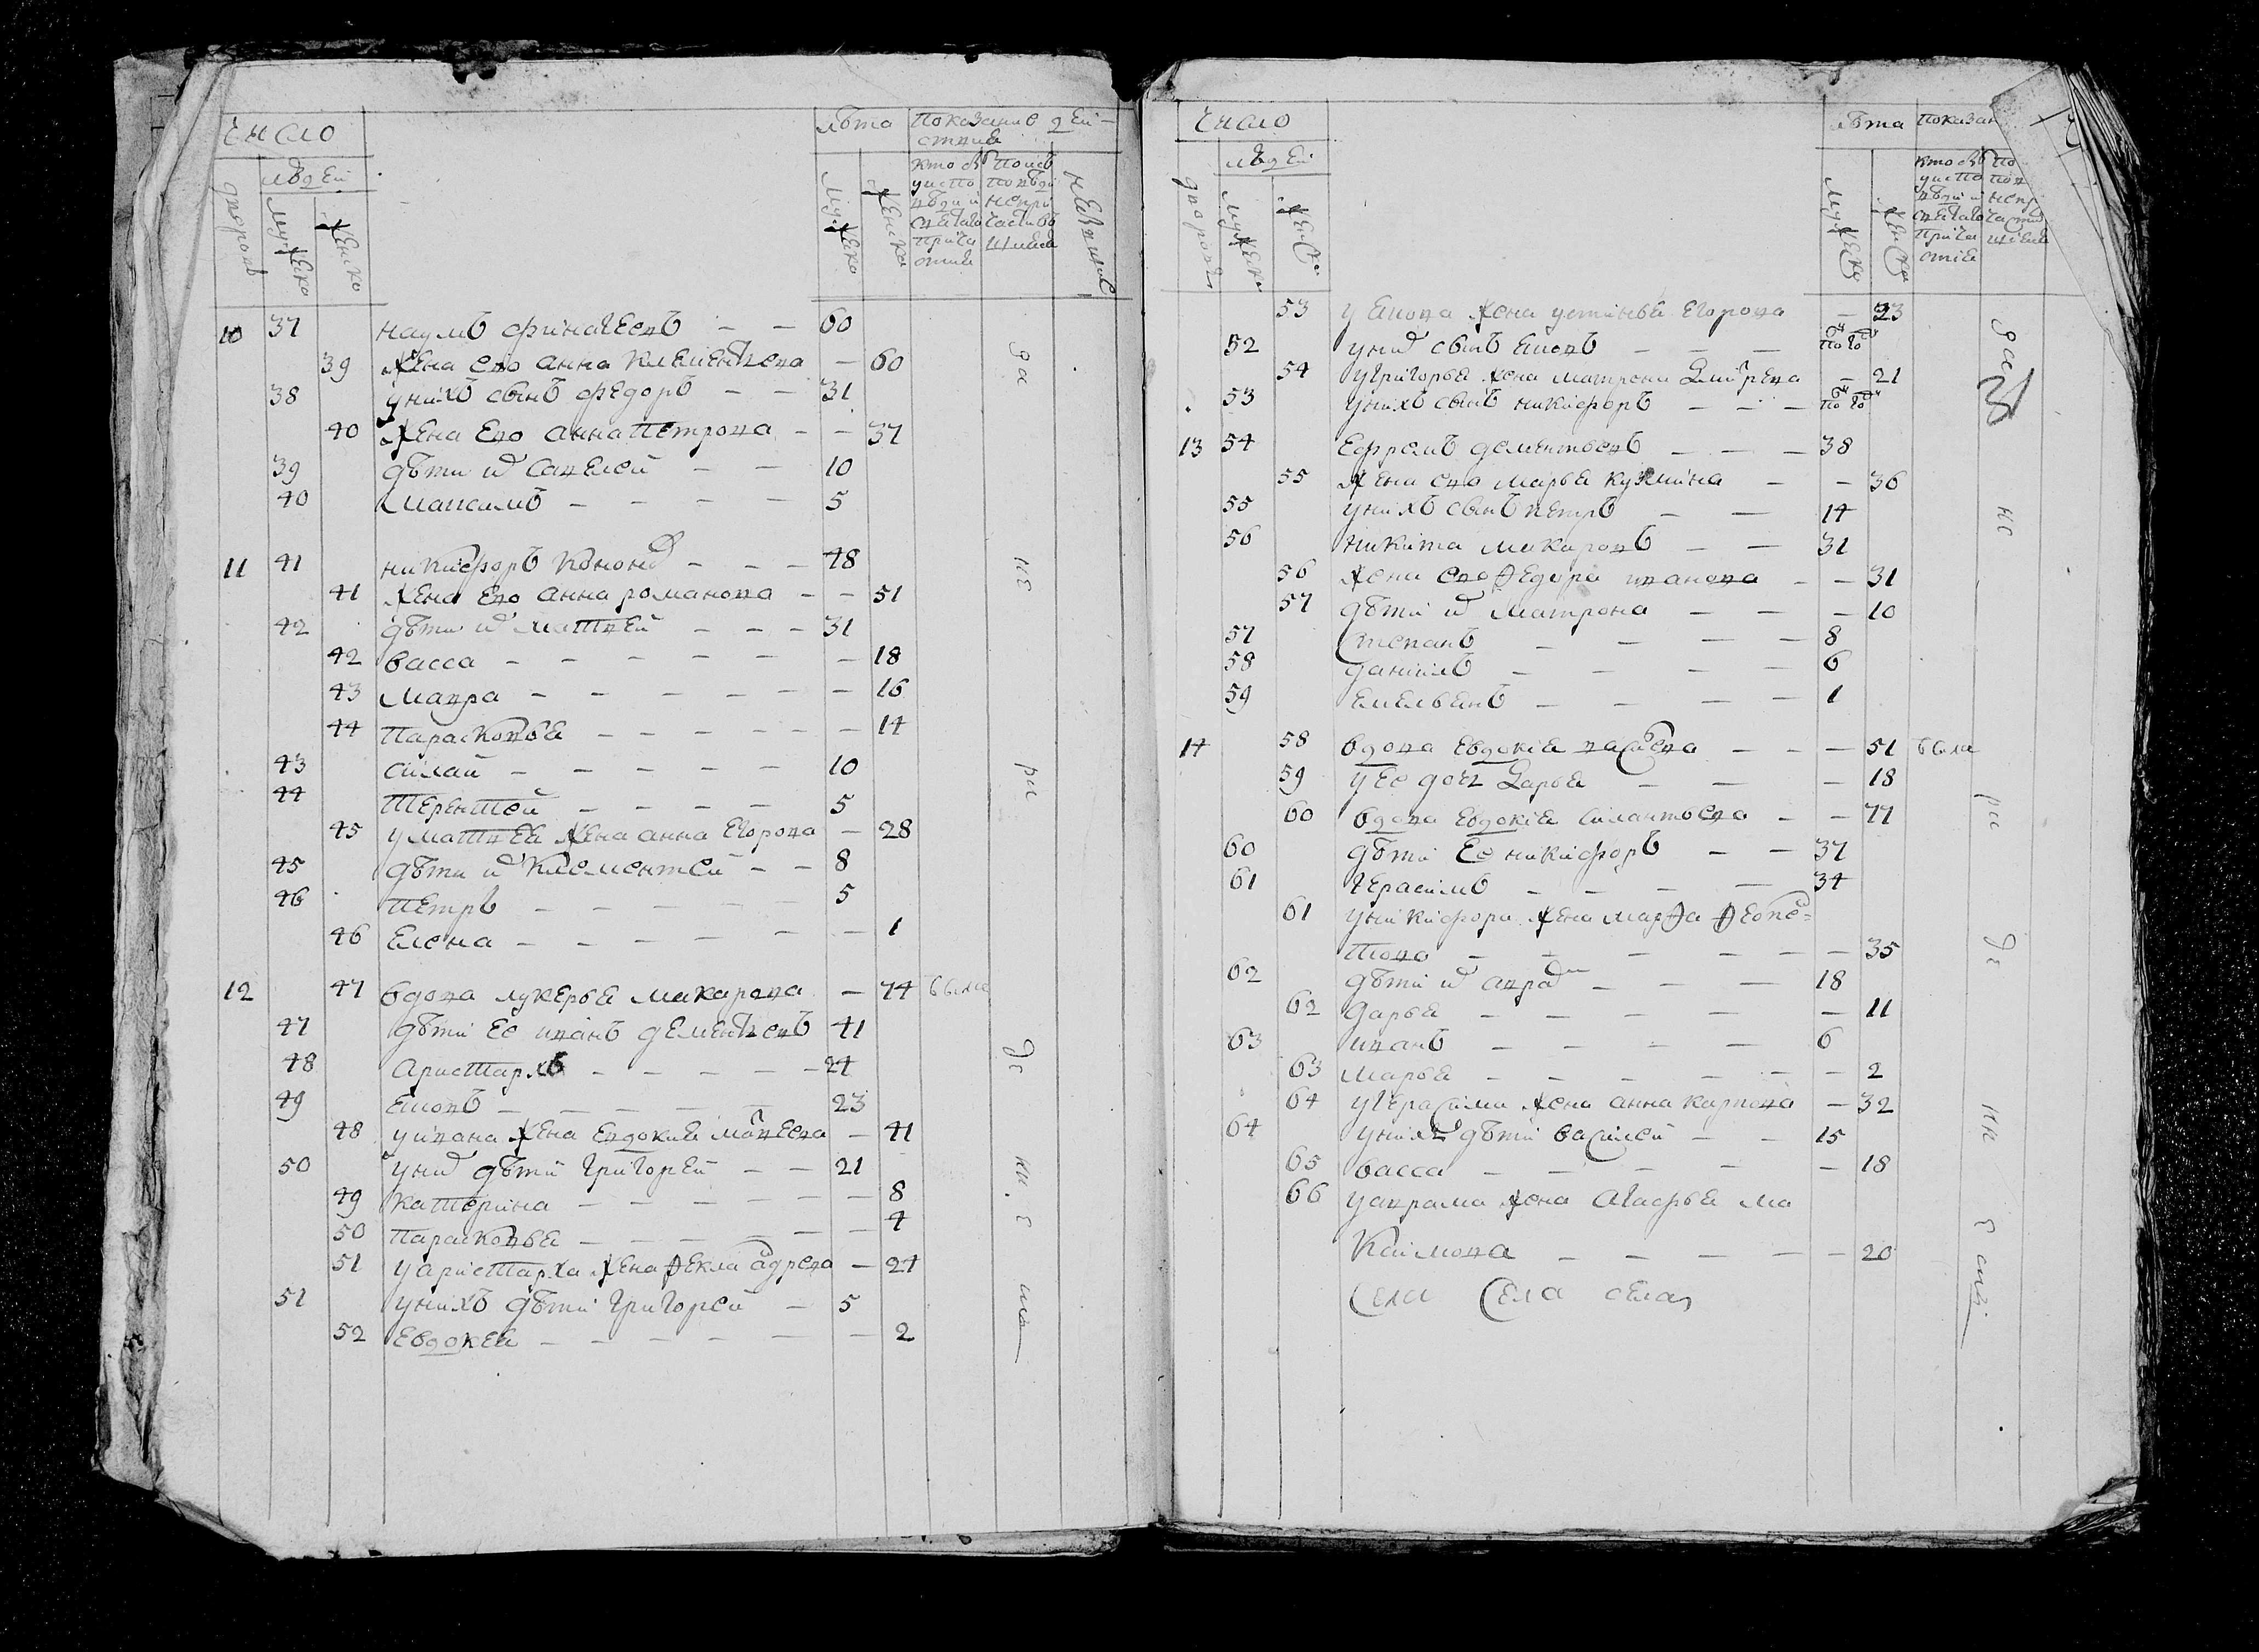 Число
людей
дворовъ
мужеска
женска
лѣта
мужеска
женска
Показание дей-
ствия
кто былъ
у испо
вѣди и
святаго
прича
стия
10 37 наумъ финагеевъ — — 60
39 жена ево анна клементьева — 60
38 у нихъ сынъ федоръ — — 31
40 жена ево анна петрова — — 37
39 дѣти их савелей — — 10
40 максимъ — — — — 5
11 41 никифоръ кононов — — — 48
41 жена ево анна романова — — 51
42 дѣти их матвей — — — 31
42 васса — — — — — — 18
43 мавра — — — — — — 16
44 парасковья — — — — — — 14
43 силай — — — — — 10
44 терентей — — — — 5
45 у матвея жена анна егорова — 28
45 дѣти их клементей — — 8
46 петръ — — — — — 5
46 елена — — — — — — 1
12 47 вдова лукерья макарова — 74 была
47 дѣти ее иванъ дементьевъ 41
48 аристархъ — — — — — 27
49 емонъ — — — — — 23
48 у ивана жена евдокия матвеева — 41
50 у них дѣти григорей — — 21
49 катерина — — — — — — 8
50 парасковья — — — — — — 4
51 у аристарха жена фекла андреева — 27
51 у нихъ дѣти григорей — 5
52 евдокея — — — — — — 2
Число
людей
дворовъ
мужеска
женска
лѣта
мужеска
женска
показан
кто былъ
у испо
вѣди и
святаго
прича
стия
53 у емона жена устинья егорова — 23
52 у них сынъ емонъ — — —
54 у григорья жена матрена дмитрева — 21
53 у нихъ сынъ никифоръ — — —
13 54 ефремъ дементьевъ — — — 38
55 жена ево марья кузмина — — 36
55 у нихъ сынъ петръ — — 14
56 никита макаровъ — — 31
56 жена ево ѳедора иванова — — 31
57 дѣти их матрона — — — 10
57 степанъ — — — 8
58 данилъ — — — — 6
59 емельянъ — — — — 1
14 58 вдова евдокия васильева — — — 51 была
59 у ее доч дарья — — — 18
60 вдова евдокия силантьева — — 77
60 дѣти ее никифоръ — — 37
61 герасимъ — — — — 34
61 у никифора жена марѳа ѳеопе-
нтова — — — — — — 35
62 дѣти их аврам — — — 18
62 дарья — — — — — 11
63 иванъ — — — — 6
63 марья — — — — — — 2
64 у герасима жена анна карпова — 32
64 у нихъ дѣти василей — — 15
65 васса — — — — — 18
66 у аврама жена агафья ма
каимова — — — — — 20
села села села